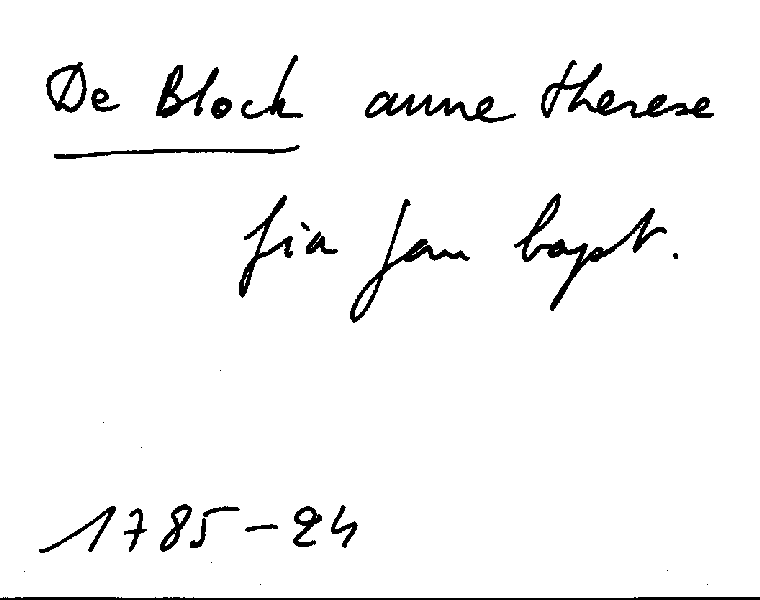 De Block anne therese
fia Jan bapt.
1785-24